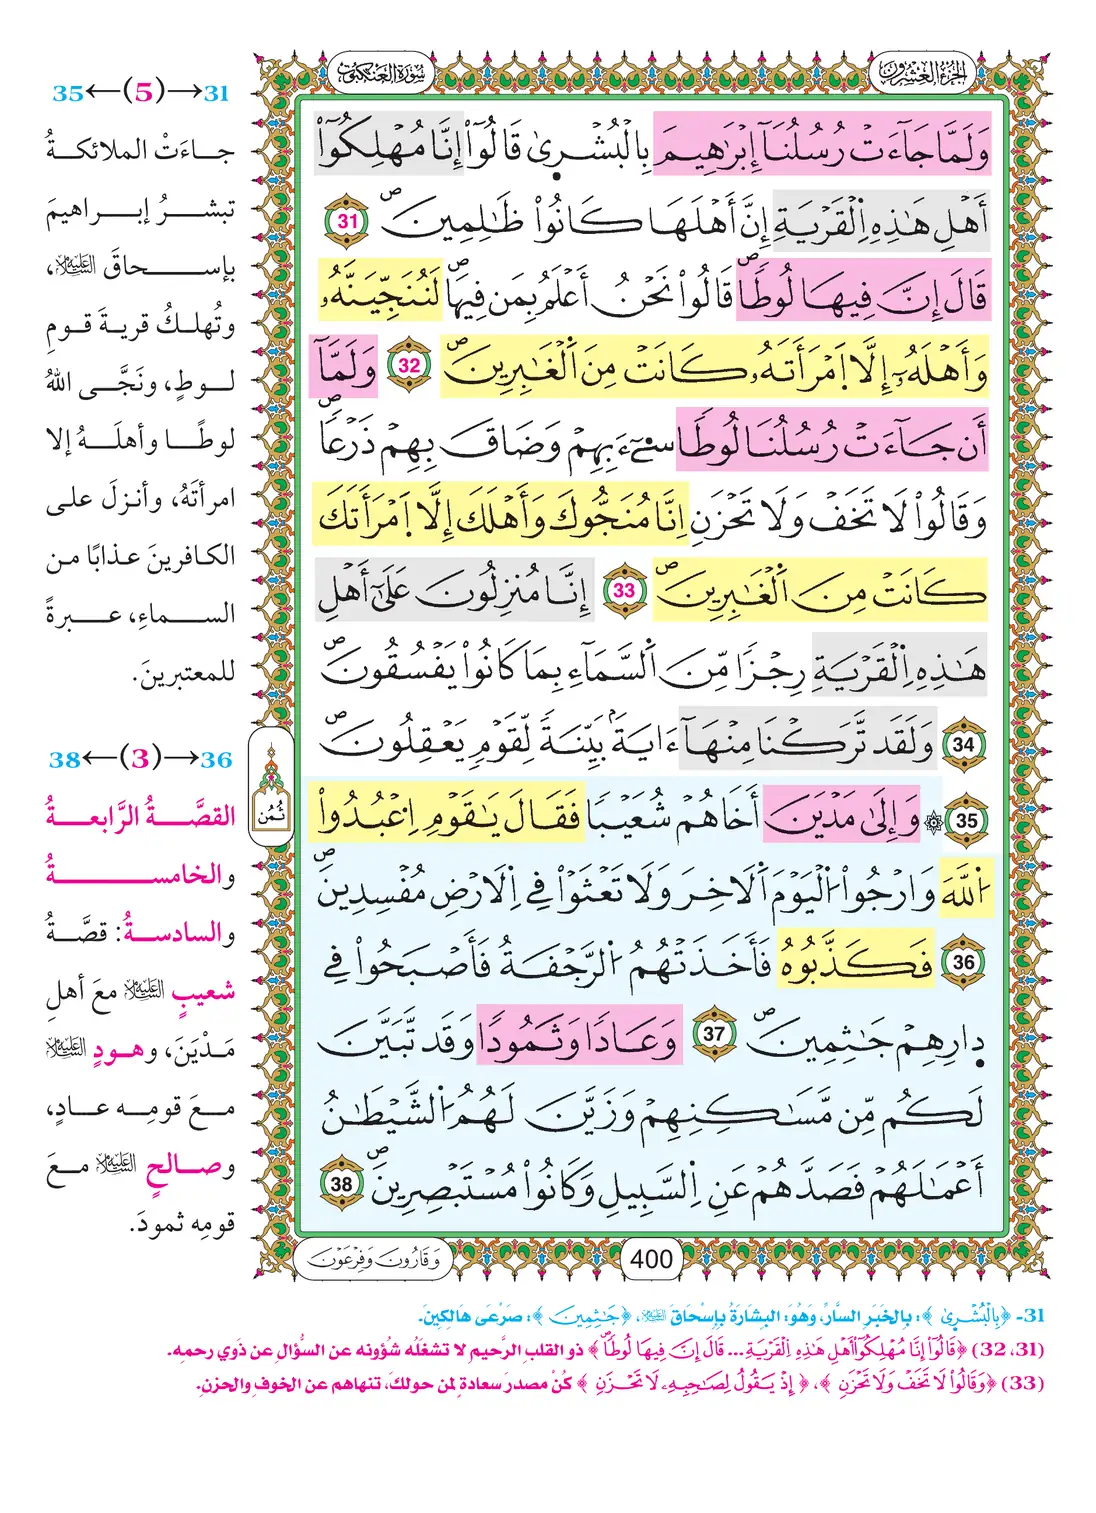 الجزء العشرون
سورة العنكبوت
وَلَمَّا جَآءَتْ رُسُلُنَآ إِبْرَٰهِيمَ بِالْبُشْرِىٰ قَالُوٓاْ إِنَّا مُهْلِكُوٓاْ
أَهْلِ هَٰذِهِ اِلْقَرْيَةِ إِنَّ أَهْلَهَا كَانُواْ ظَٰلِمِينَۖ 31
قَالَ إِنَّ فِيهَا لُوطٗاۖ قَالُواْ نَحْنُ أَعْلَمُ بِمَن فِيهَاۖ لَنُنَجِّيَنَّهُۥ
وَأَهْلَهُۥٓ إِلَّا اَمْرَأَتَهُۥ كَانَتْ مِنَ اَلْغَٰبِرِينَۖ 32 وَلَمَّآ
أَن جَآءَتْ رُسُلُنَا لُوطٗا سِيٓءَ بِهِمْ وَضَاقَ بِهِمْ ذَرْعٗاۖ
وَقَالُواْ لَا تَخَفْ وَلَا تَحْزَنِ اِنَّا مُنَجُّوكَ وَأَهْلَكَ إِلَّا اَمْرَأَتَكَ
كَانَتْ مِنَ اَلْغَٰبِرِينَۖ 33 إِنَّا مُنزِلُونَ عَلَىٰٓ أَهْلِ
هَٰذِهِ اِلْقَرْيَةِ رِجْزٗا مِّنَ اَلسَّمَآءِ بِمَا كَانُواْ يَفْسُقُونَۖ
34 وَلَقَد تَّرَكْنَا مِنْهَآ ءَايَةَۢ بَيِّنَةٗ لِّقَوْمٖ يَعْقِلُونَۖ
35 ۞ وَإِلَىٰ مَدْيَنَ أَخَاهُمْ شُعَيْبٗا فَقَالَ يَٰقَوْمِ اِعْبُدُواْ
اُللَّهَ وَارْجُواْ اُلْيَوْمَ اَلَاخِرَ وَلَا تَعْثَوْاْ فِے اِلَارْضِ مُفْسِدِينَۖ
36 فَكَذَّبُوهُ فَأَخَذَتْهُمُ اُلرَّجْفَةُ فَأَصْبَحُواْ فِے
دِارِهِمْ جَٰثِمِينَۖ 37 وَعَادٗا وَثَمُودٗا وَقَد تَّبَيَّنَ
لَكُم مِّن مَّسَٰكِنِهِمْ وَزَيَّنَ لَهُمُ اُلشَّيْطَٰنُ
أَعْمَٰلَهُمْ فَصَدَّهُمْ عَنِ اِلسَّبِيلِ وَكَانُواْ مُسْتَبْصِرِينَۖ 38
400
وَقَٰرُونَ وَفِرْعَوْنَ
ثُمُن
31→(5)←35
جاءَتْ الملائكةُ
تبشرُ إبراهيمَ
بإسحاقَ عليه السلام،
وتُهلكُ قريةَ قومِ
لوطٍ، ونَجَّى اللهُ
لوطًا وأهلَهُ إلا
امرأتَهُ، وأنزلَ على
الكافرينَ عذابًا من
السماءِ، عبرةً
للمعتبرينَ.
36→(3)←38
القصَّةُ الرَّابعةُ
والخامسةُ
والسادسةُ: قصَّةُ
شعيبٍ عليه السلام معَ أهلِ
مَدْيَنَ، وهودٍ عليه السلام
معَ قومِه عادٍ،
وصالحٍ عليه السلام معَ
قومِه ثمودَ.
31- ﴿بِالْبُشْرِىٰ﴾: بِالخَبَرِ السَّارِّ، وَهُوَ: البِشَارَةُ بِإِسْحَاقَ عليه السلام، ﴿جَٰثِمِينَ﴾: صَرْعَى هَالِكِينَ.
(31، 32) ﴿قَالُوٓاْ إِنَّا مُهْلِكُوٓاْ أَهْلِ هَٰذِهِ اِلْقَرْيَةِ ... قَالَ إِنَّ فِيهَا لُوطٗاۖ﴾ ذو القلبِ الرَّحيمِ لا تشغلُه شؤونه عن السُّؤالِ عن ذَوِي رحمِه.
(33) ﴿وَقَالُواْ لَا تَخَفْ وَلَا تَحْزَنِ﴾، ﴿إِذْ يَقُولُ لِصَٰحِبِهِۦ لَا تَحْزَنِ﴾ كُنْ مصدرَ سعادةٍ لمن حولكَ، تنهاهم عن الخوفِ والحزنِ.